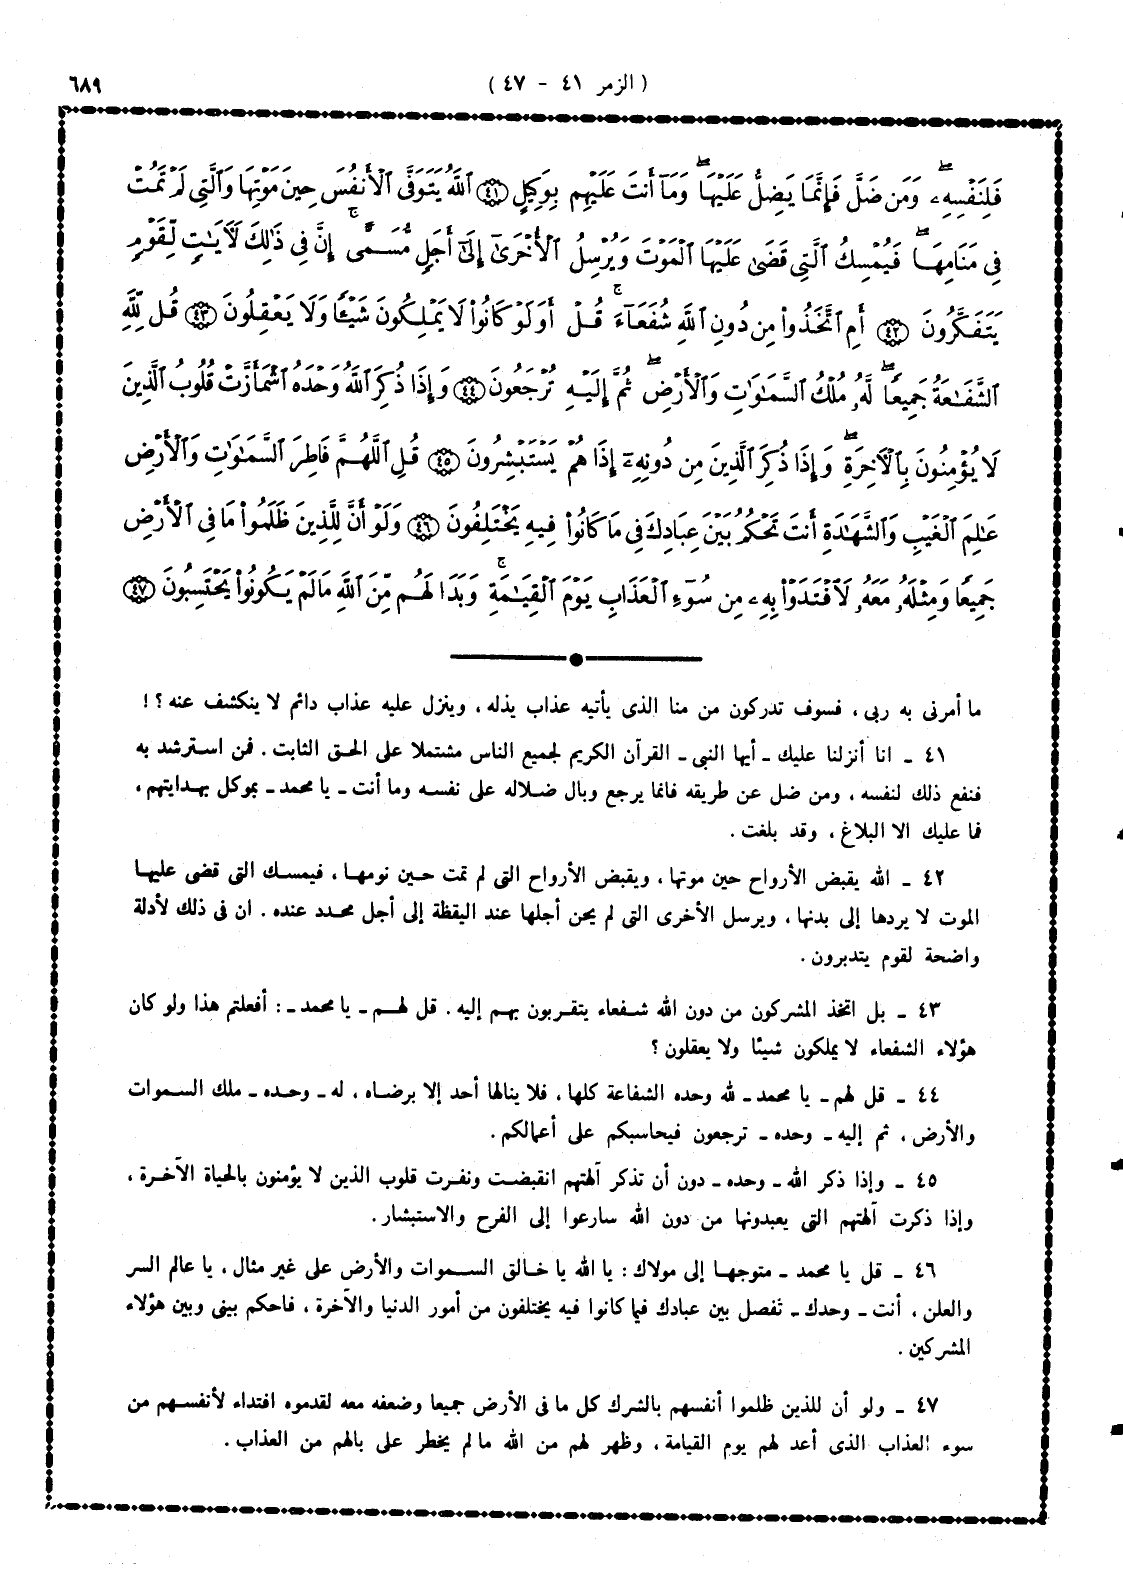 ( الزمر ٤١ - ٤٧ )
٦٨٩
فَلِنَفْسِهِۦۖ وَمَن ضَلَّ فَإِنَّمَا يَضِلُّ عَلَيْهَاۖ وَمَآ أَنتَ عَلَيْهِم بِوَكِيلٍ ٤١ ٱللَّهُ يَتَوَفَّى ٱلْأَنفُسَ حِينَ مَوْتِهَا وَٱلَّتِى لَمْ تَمُتْ
فِى مَنَامِهَاۖ فَيُمْسِكُ ٱلَّتِى قَضَىٰ عَلَيْهَا ٱلْمَوْتَ وَيُرْسِلُ ٱلْأُخْرَىٰٓ إِلَىٰٓ أَجَلٍ مُّسَمًّىۚ إِنَّ فِى ذَٰلِكَ لَـَٔايَـٰتٍ لِّقَوْمٍ
يَتَفَكَّرُونَ ٤٢ أَمِ ٱتَّخَذُوا۟ مِن دُونِ ٱللَّهِ شُفَعَآءَۚ قُلْ أَوَلَوْ كَانُوا۟ لَا يَمْلِكُونَ شَيْـًٔا وَلَا يَعْقِلُونَ ٤٣ قُل لِّلَّهِ
ٱلشَّفَـٰعَةُ جَمِيعًاۖ لَّهُۥ مُلْكُ ٱلسَّمَـٰوَٰتِ وَٱلْأَرْضِۖ ثُمَّ إِلَيْهِ تُرْجَعُونَ ٤٤ وَإِذَا ذُكِرَ ٱللَّهُ وَحْدَهُ ٱشْمَأَزَّتْ قُلُوبُ ٱلَّذِينَ
لَا يُؤْمِنُونَ بِٱلْـَٔاخِرَةِۖ وَإِذَا ذُكِرَ ٱلَّذِينَ مِن دُونِهِۦٓ إِذَا هُمْ يَسْتَبْشِرُونَ ٤٥ قُلِ ٱللَّهُمَّ فَاطِرَ ٱلسَّمَـٰوَٰتِ وَٱلْأَرْضِ
عَـٰلِمَ ٱلْغَيْبِ وَٱلشَّهَـٰدَةِ أَنتَ تَحْكُمُ بَيْنَ عِبَادِكَ فِى مَا كَانُوا۟ فِيهِ يَخْتَلِفُونَ ٤٦ وَلَوْ أَنَّ لِلَّذِينَ ظَلَمُوا۟ مَا فِى ٱلْأَرْضِ
جَمِيعًا وَمِثْلَهُۥ مَعَهُۥ لَٱفْتَدَوْا۟ بِهِۦ مِن سُوٓءِ ٱلْعَذَابِ يَوْمَ ٱلْقِيَـٰمَةِۚ وَبَدَا لَهُم مِّنَ ٱللَّهِ مَا لَمْ يَكُونُوا۟ يَحْتَسِبُونَ ٤٧
ما أمرنى به ربى ، فسوف تدركون من منا الذى يأتيه عذاب يذله ، وينزل عليه عذاب دائم لا ينكشف عنه ؟ !
٤١ ـ انا أنزلنا عليك ـ أيها النبى ـ القرآن الكريم لجميع الناس مشتملا على الحق الثابت . فمن استرشد به
فنفع ذلك لنفسه ، ومن ضل عن طريقه فانما يرجع وبال ضلاله على نفسه وما أنت ـ يا محمد ـ بموكل بهدايتهم ،
فما عليك الا البلاغ ، وقد بلغت .
٤٢ ـ الله يقبض الأرواح حين موتها ، ويقبض الأرواح التى لم تمت حين نومها ، فيمسك التى قضى عليها
الموت لا يردها إلى بدنها ، ويرسل الأخرى التى لم يحن أجلها عند اليقظة إلى أجل محدد عنده . ان فى ذلك لأدلة
واضحة لقوم يتدبرون .
٤٣ ـ بل اتخذ المشركون من دون الله شفعاء يتقربون بهم إليه . قل لهم ـ يا محمد ـ : أفعلتم هذا ولو كان
هؤلاء الشفعاء لا يملكون شيئا ولا يعقلون ؟
٤٤ ـ قل لهم ـ يا محمد ـ لله وحده الشفاعة كلها ، فلا ينالها أحد إلا برضاه ، له ـ وحده ـ ملك السموات
والأرض ، ثم إليه ـ وحده ـ ترجعون فيحاسبكم على أعمالكم .
٤٥ ـ وإذا ذكر الله ـ وحده ـ دون أن تذكر آلهتهم انقبضت ونفرت قلوب الذين لا يؤمنون بالحياة الآخرة ،
وإذا ذكرت آلهتهم التى يعبدونها من دون الله سارعوا إلى الفرح والاستبشار .
٤٦ ـ قل يا محمد ـ متوجها إلى مولاك : يا الله يا خالق السموات والأرض على غير مثال ، يا عالم السر
والعلن ، أنت ـ وحدك ـ تفصل بين عبادك فيما كانوا فيه يختلفون من أمور الدنيا والآخرة ، فاحكم بينى وبين هؤلاء
المشركين .
٤٧ ـ ولو أن للذين ظلموا أنفسهم بالشرك كل ما فى الأرض جميعا وضعفه معه لقدموه افتداء لأنفسهم من
سوء العذاب الذى أعد لهم يوم القيامة ، وظهر لهم من الله ما لم يخطر على بالهم من العذاب .